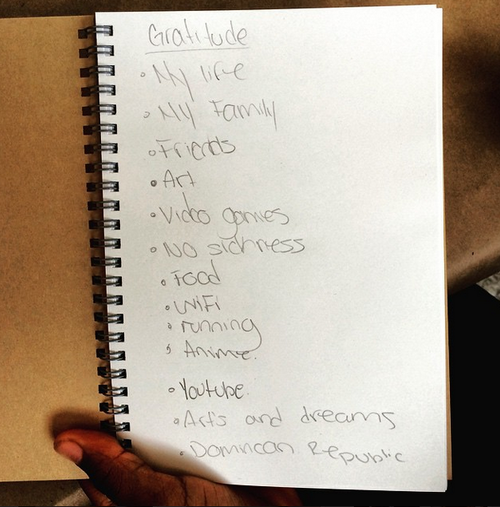 Gratitude
• My life
• My Family
• Friends
• Art
• Video games
• No sickness
• Food
• WiFi
• running
• Anime.
• Youtube.
• Arts and dreams
• Dominican Republic